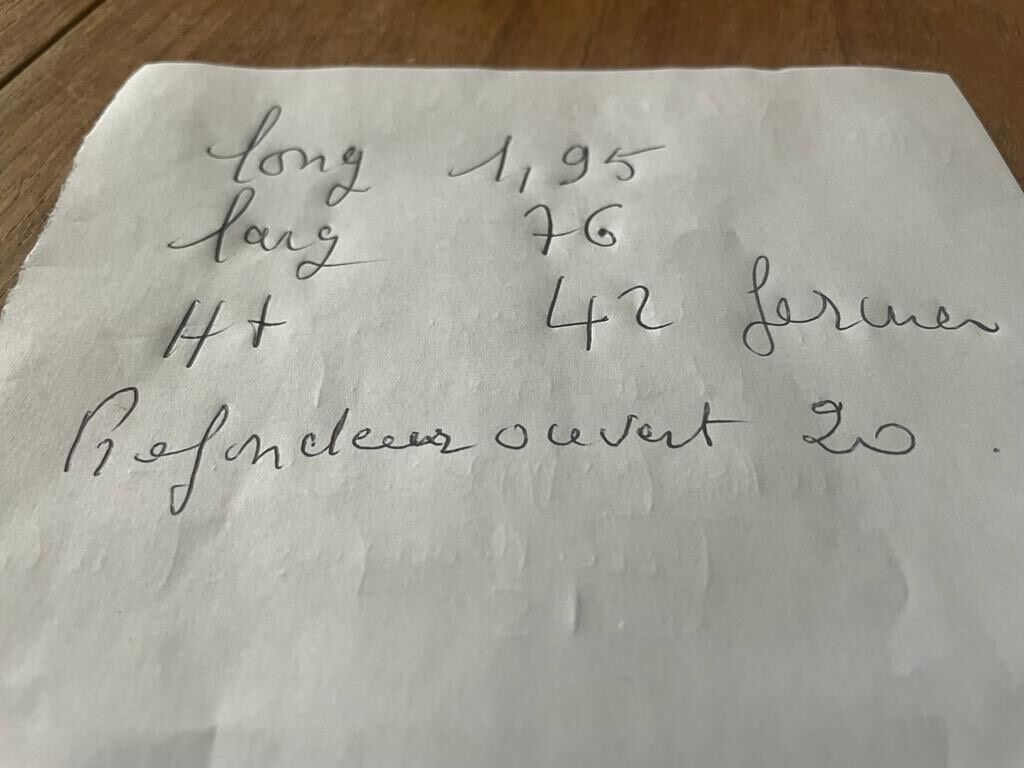 long 1,95
larg 76
Ht 42 fermer
Profondeur ouvert 20.